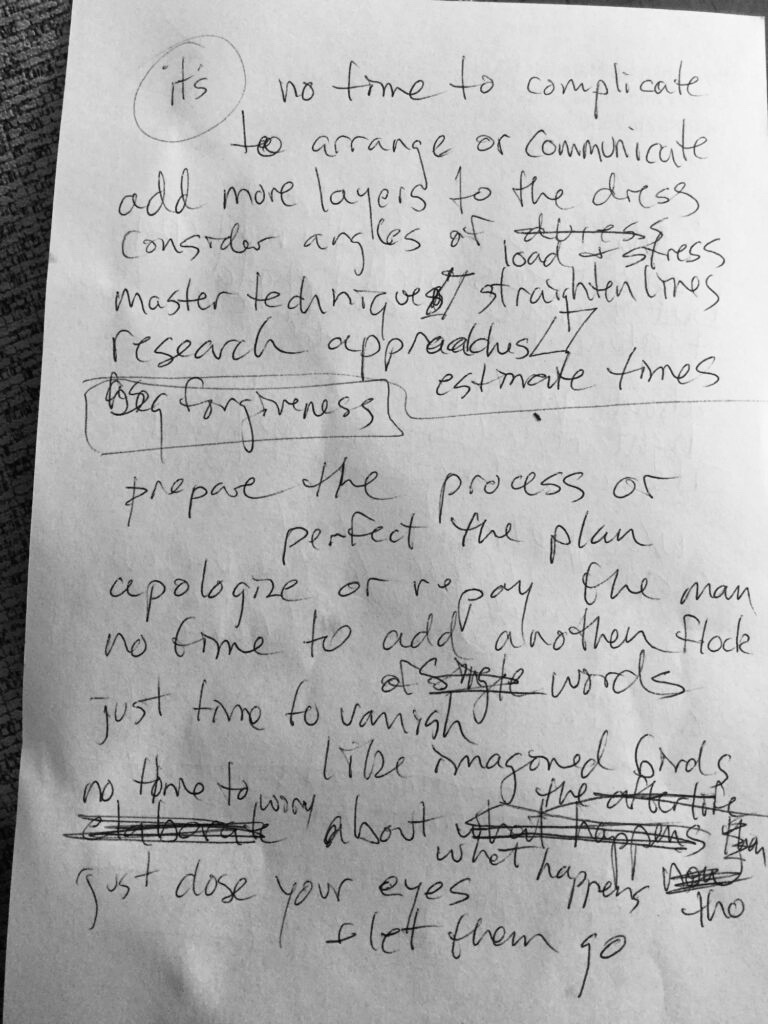 it's no time to complicate
to arrange or communicate
add more layers to the dress
consider angles of duress
load + stress
master techniques // straighten lines
research approaches //
estimate times
beg forgiveness
prepare the process or
perfect the plan
apologize or repay the man
no time to add another flock
of single words
just time to vanish
like imagined birds
no time to worry the afterlife
elaborate about what happens
what happens now
tho
just close your eyes
+ let them go